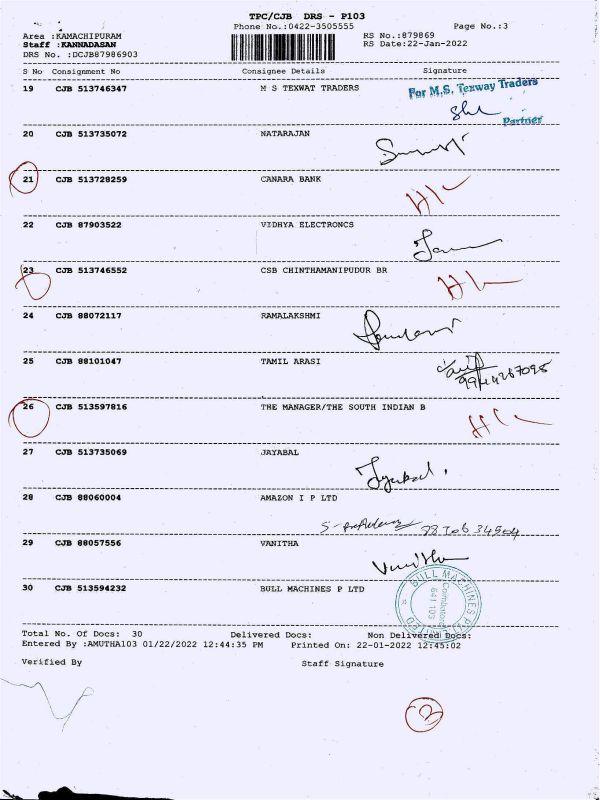 TPC/CJB DRS - P103
Phone No.:0422-3505555 Page No.:3
Area :KAMACHIPURAM RS No.:879869
Staff :KANNADASAN RS Date:22-Jan-2022
DRS No. :DCJB87986903
S No Consignment No Consignee Details Signature
19 CJB 513746347 M S TEXWAT TRADERS For M.S. Texway Traders
Partner
20 CJB 513735072 NATARAJAN
21 CJB 513728259 CANARA BANK
22 CJB 87903522 VIDHYA ELECTRONCS
23 CJB 513746552 CSB CHINTHAMANIPUDUR BR
24 CJB 88072117 RAMALAKSHMI
25 CJB 88101047 TAMIL ARASI
26 CJB 513597816 THE MANAGER/THE SOUTH INDIAN B
27 CJB 513735069 JAYABAL
Jayabal
28 CJB 88060004 AMAZON I P LTD
29 CJB 88057556 VANITHA
Vanitha
30 CJB 513594232 BULL MACHINES P LTD
BULL MACHINES (P) LIMITED
Coimbatore
641 103
Total No. Of Docs: 30 Delivered Docs: Non Delivered Docs:
Entered By :AMUTHA103 01/22/2022 12:44:35 PM Printed On: 22-01-2022 12:45:02
Verified By Staff Signature
3